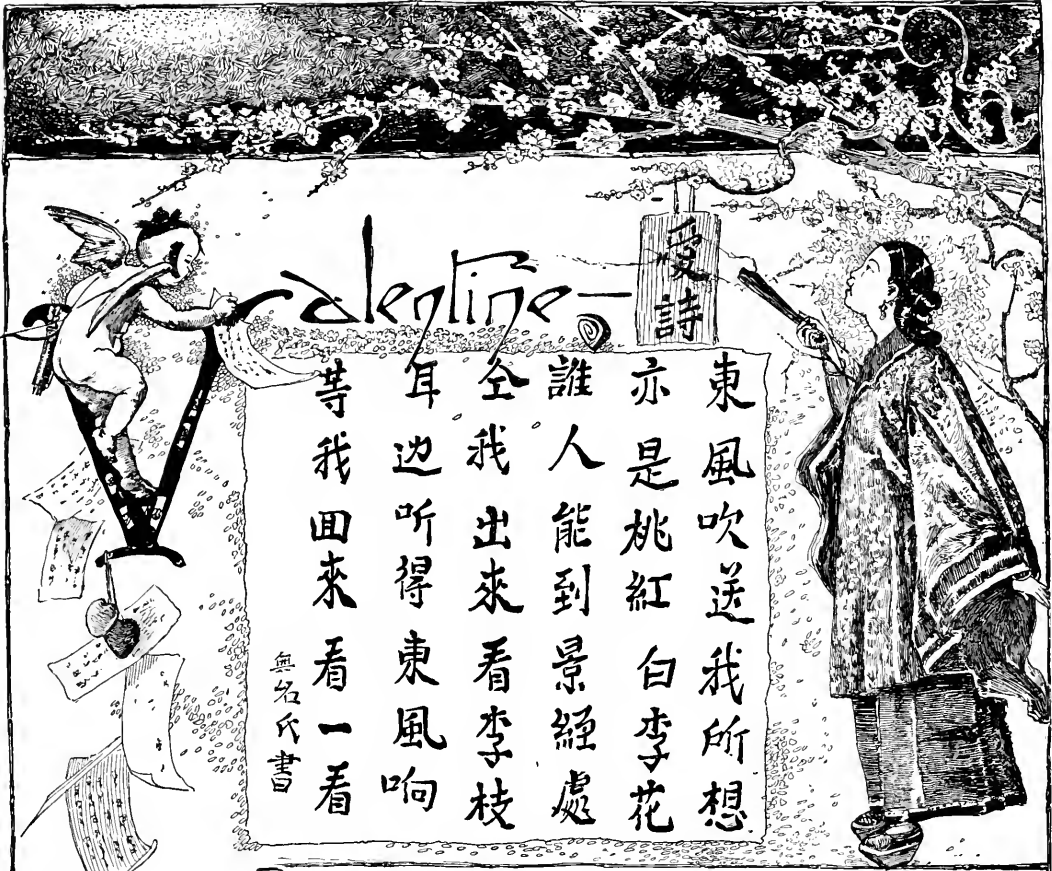 Valentine
愛詩
東風吹送我所想
亦是桃紅白李花
誰人能到景經處
仝我出來看李枝
耳边听得東風响
等我回來看一看
無名氏書